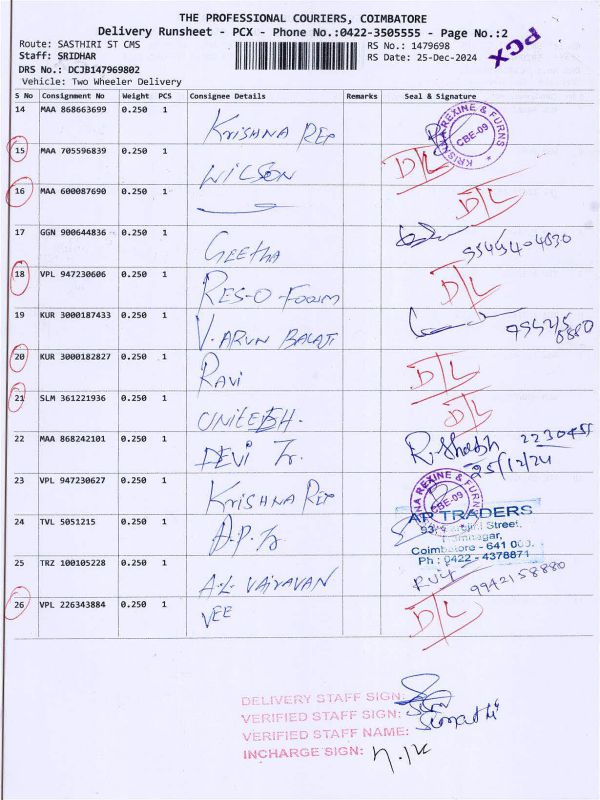 THE PROFESSIONAL COURIERS, COIMBATORE
Delivery Runsheet - PCX - Phone No.:0422-3505555 - Page No.:2
Route: SASTHIRI ST CMS RS No.: 1479698
Staff: SRIDHAR RS Date: 25-Dec-2024
PCX
DRS No.: DCJB147969802
Vehicle: Two Wheeler Delivery
S No Consignment No Weight PCS Consignee Details Remarks Seal & Signature
14 MAA 868663699 0.250 1 KRISHNA REP KRISHNA REXINE & FURNS CBE-09
15 MAA 705596839 0.250 1 WILSON D/L
16 MAA 600087690 0.250 1 D/L
17 GGN 900644836 0.250 1 GEETHA
18 VPL 947230606 0.250 1 RES-O-FOAM D/L
19 KUR 3000187433 0.250 1 V. ARUN BALAJI
20 KUR 3000182827 0.250 1 RAVI D/L
21 SLM 361221936 0.250 1 D/L
22 MAA 868242101 0.250 1 DEVI Tr. 2230455
25/12/24
23 VPL 947230627 0.250 1 KRISHNA REP KRISHNA REXINE & FURNS CBE-09
24 TVL 5051215 0.250 1 A.P. Tr AP TRADERS
Street,
Coimbatore - 641 009.
Ph : 0422 - 4378871
25 TRZ 100105228 0.250 1 A.L. VAIRAVAN 9942158880
26 VPL 226343884 0.250 1 VEE D/L
DELIVERY STAFF SIGN:
VERIFIED STAFF SIGN:
VERIFIED STAFF NAME: Sumathi
INCHARGE SIGN: